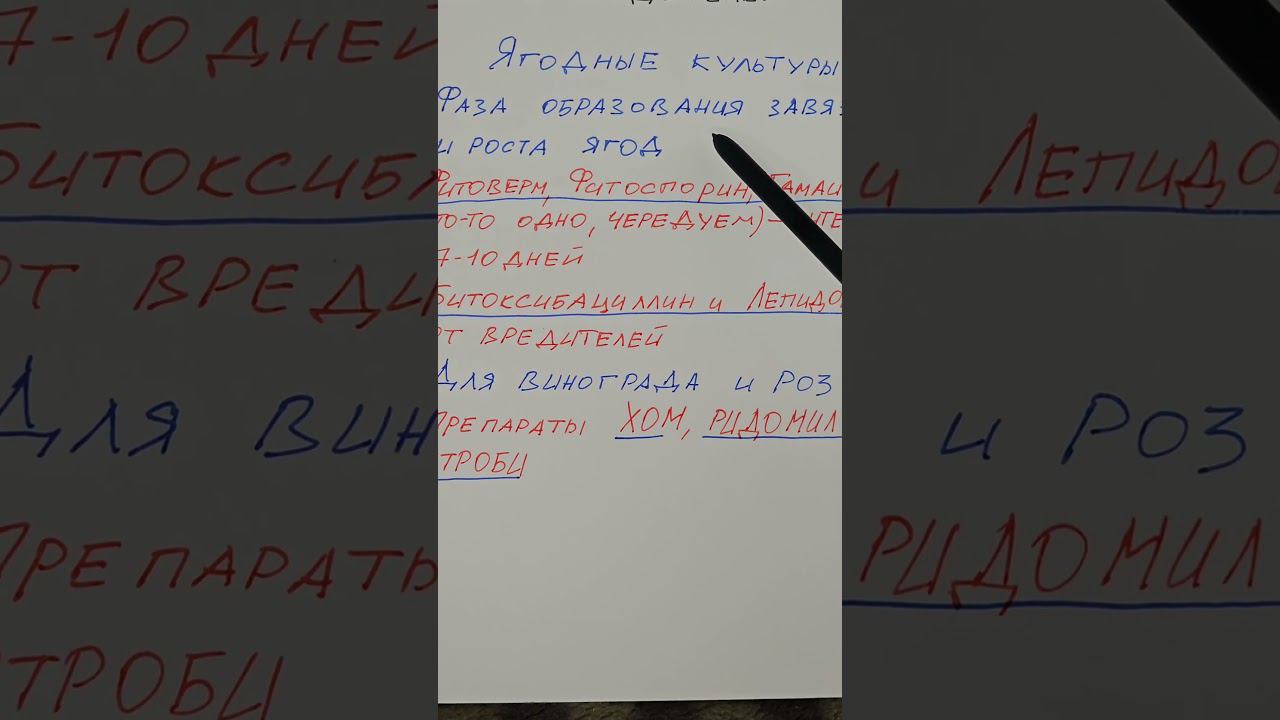 Ягодные культуры
Фаза образования завяз
и роста ягод
Фитоверм, Фитоспорин, Гамаи
то-то одно, чередуем) – инте
7-10 дней
Битоксибациллин и Лепидо
от вредителей
Для винограда и роз
Препараты ХОМ, РИДОМИЛ
СТРОБИ